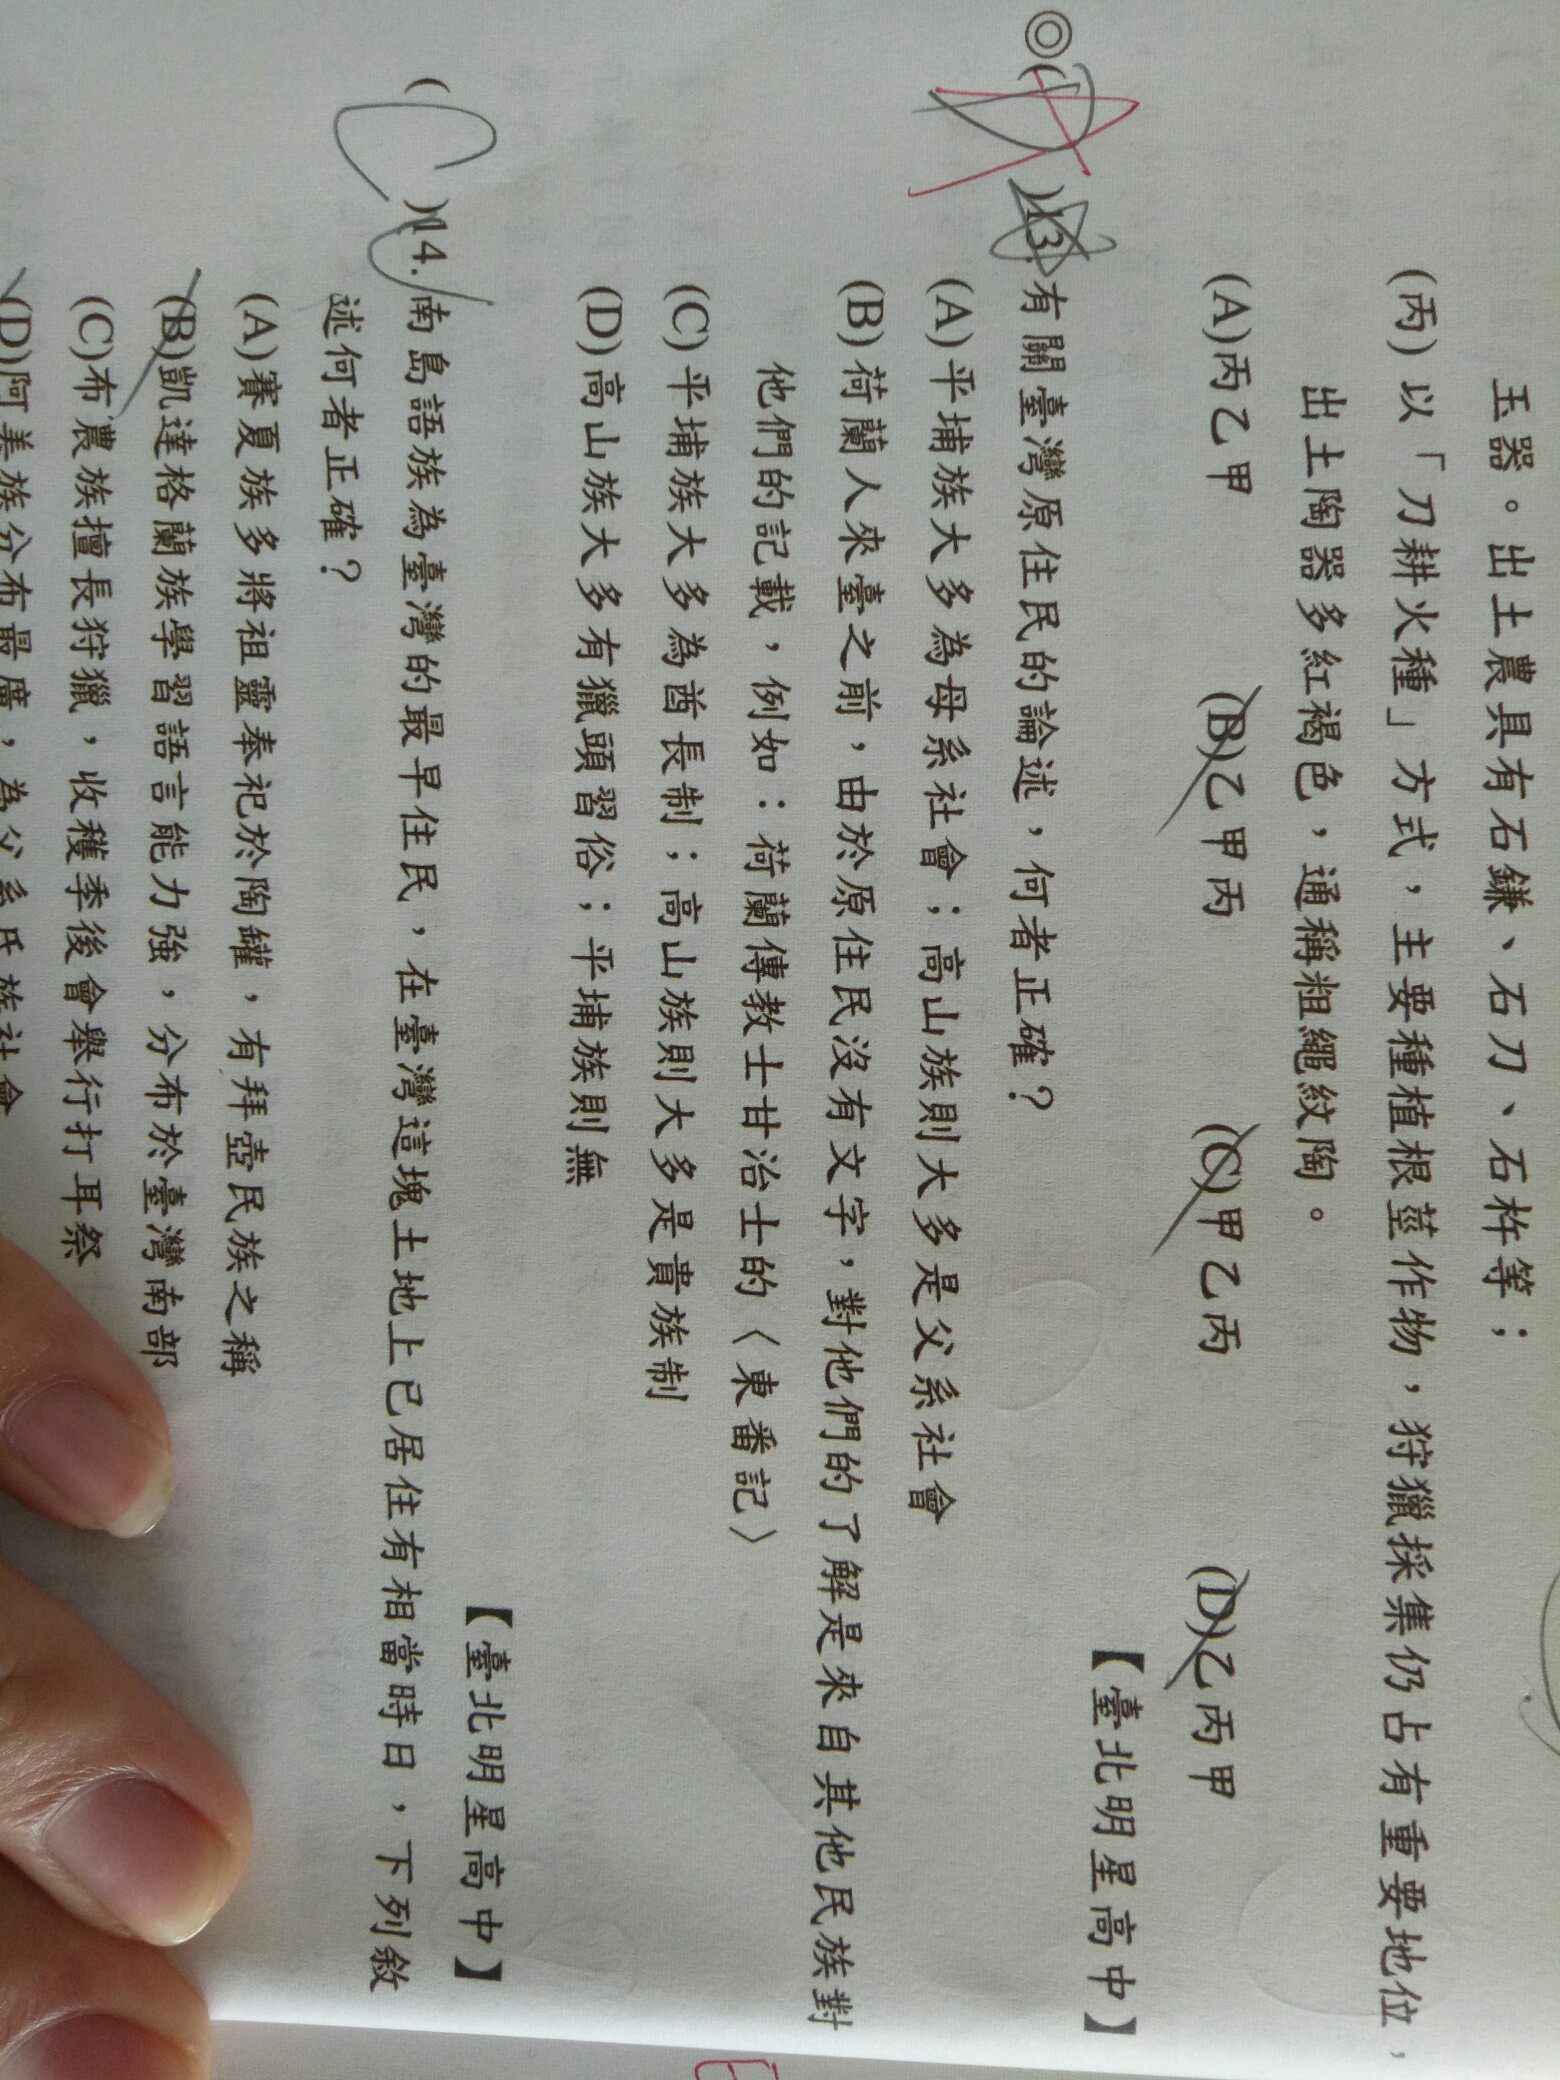 玉器。出土農具有石鎌、石刀、石杵等；
(丙)以「刀耕火種」方式，主要種植根莖作物，狩獵採集仍占有重要地位，
出土陶器多紅褐色，通稱粗繩紋陶。
(A)丙乙甲 (B)乙甲丙 (C)甲乙丙 (D)乙丙甲
【臺北明星高中】
◎( )13.有關臺灣原住民的論述，何者正確？
(A)平埔族大多為母系社會；高山族則大多是父系社會
(B)荷蘭人來臺之前，由於原住民沒有文字，對他們的了解是來自其他民族對
他們的記載，例如：荷蘭傳教士甘治士的〈東番記〉
(C)平埔族大多為酋長制；高山族則大多是貴族制
(D)高山族大多有獵頭習俗；平埔族則無
【臺北明星高中】
(C)14.南島語族為臺灣的最早住民，在臺灣這塊土地上已居住有相當時日，下列敘
述何者正確？
(A)賽夏族多將祖靈奉祀於陶罐，有拜壺民族之稱
(B)凱達格蘭族學習語言能力強，分布於臺灣南部
(C)布農族擅長狩獵，收穫季後會舉行打耳祭
(D)阿美族分布最廣，為父系氏族社會